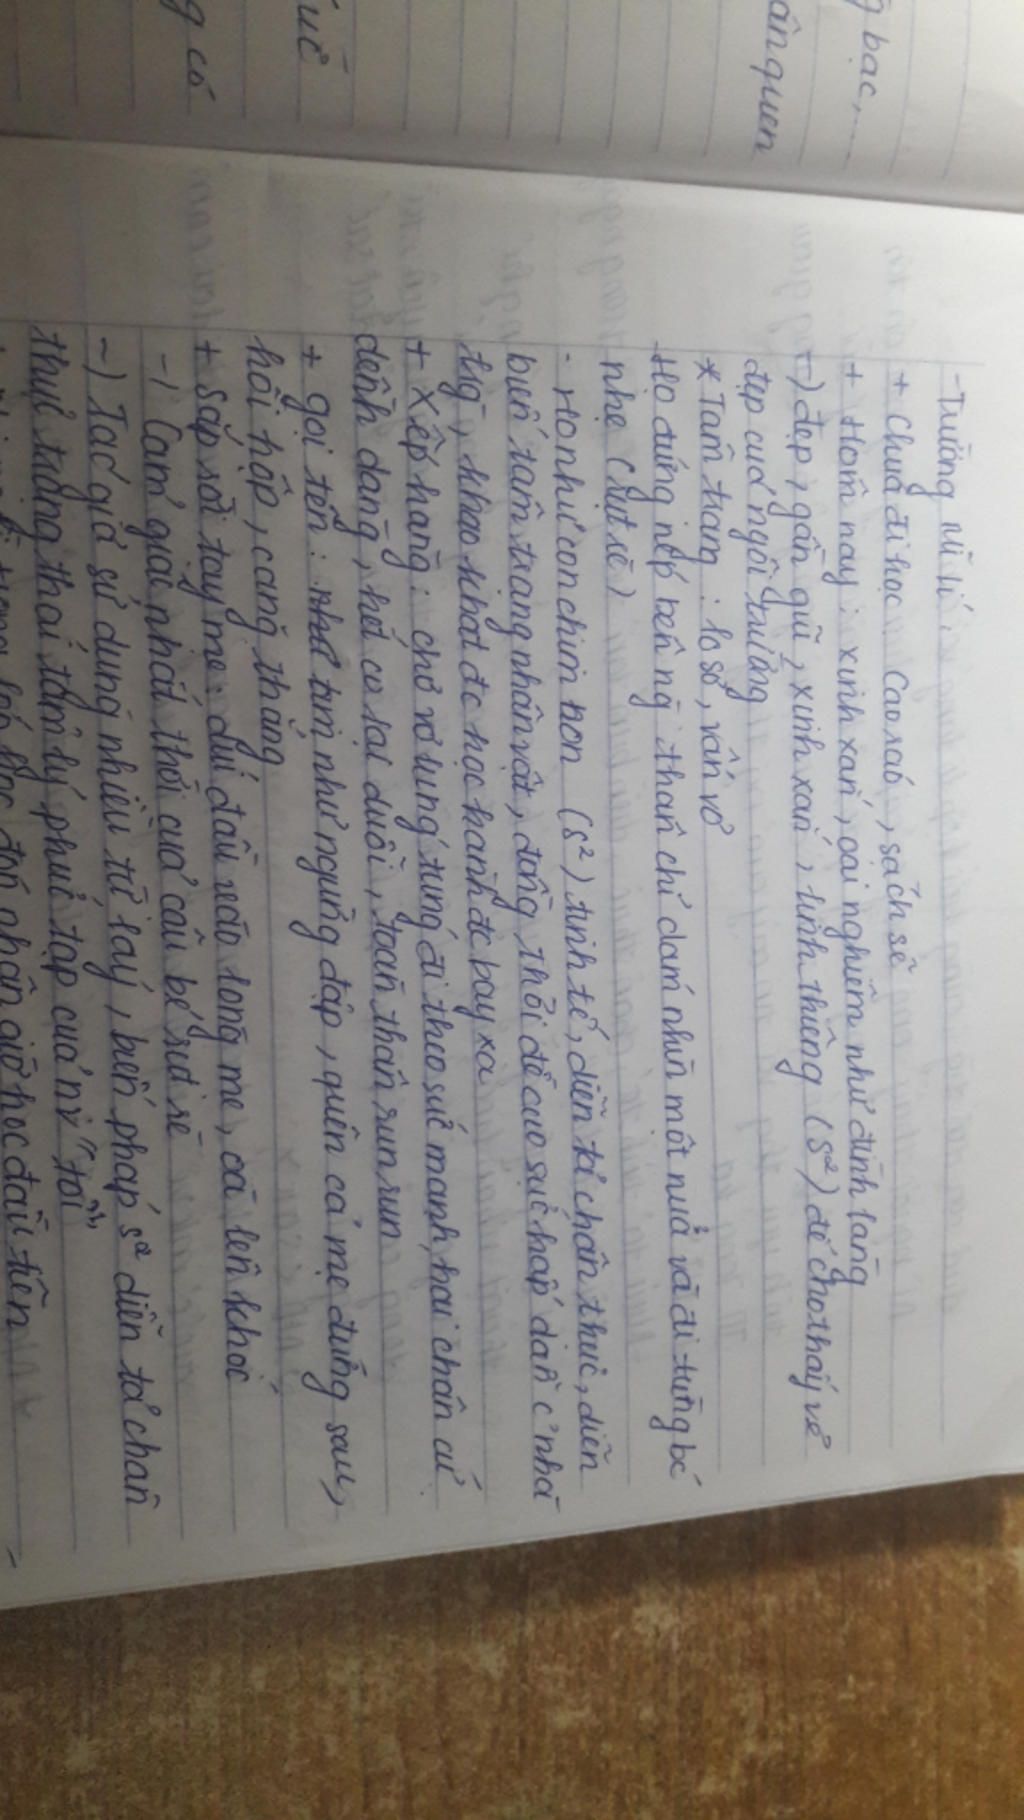 g bạc,....
ân quen
uê
g có
- Trường Mĩ Lí
+ Chưa đi học Cao ráo, sạch sẽ
+ Hôm nay: xinh xắn, oai nghiêm như đình làng
-) đẹp, gần gũi, xinh xắn, linh thiêng (s²) để cho thấy vẻ
đẹp của ngôi trường
* Tâm trạng: lo sợ, vẩn vơ
Họ đứng nép bên ng thân chỉ dám nhìn một nửa và đi từng bc
nhẹ (rụt rè)
- Họ như con chim non (s²) tinh tế, diễn tả chân thực, diễn
biến tâm trạng nhân vật, đồng thời đề cao sức hấp dẫn c' nhà
trg, khao khát đc học hành đc bay xa
+ Xếp hàng: chơ vơ lúng túng đi theo sức mạnh, hai chân cứ
dềnh dàng, hết co lại duỗi, toàn thân run run
+ gọi tên: tim như ngừng đập, quên cả mẹ đứng sau,
hồi hộp, căng thẳng
+ Sắp rời tay mẹ: dúi đầu vào lòng mẹ, oà lên khóc
-) Cảm giác nhất thời của cậu bé rụt rè
-) Tác giả sử dụng nhiều từ láy, biện pháp s² diễn tả chân
thực trạng thái tâm lý phức tạp của nv "tôi"
lớp học đón nhận giờ học đầu tiên